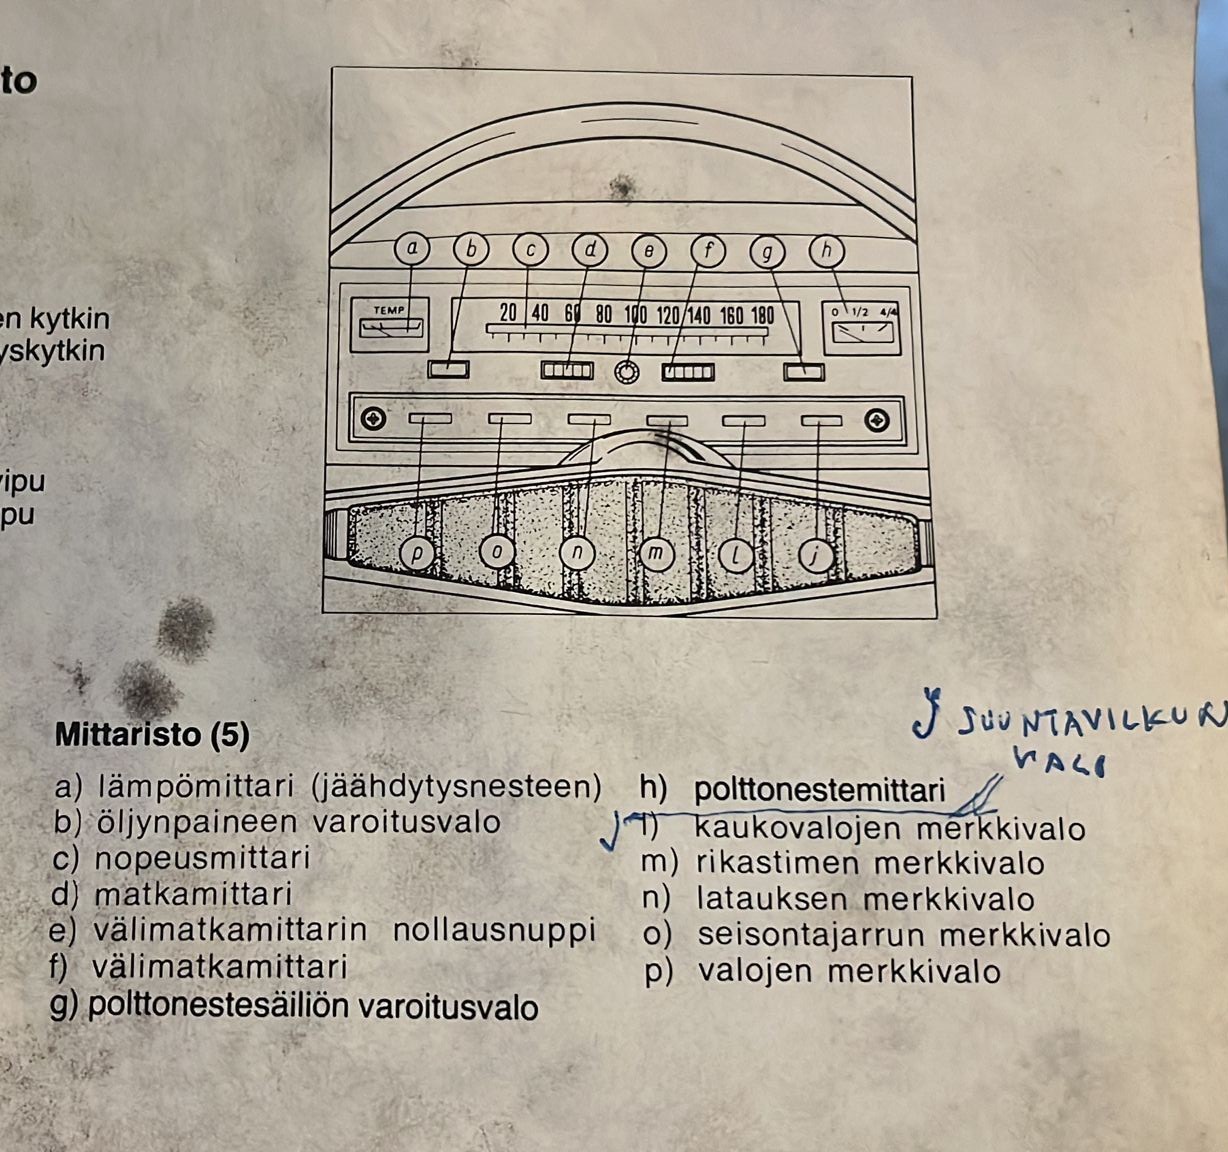 to
en kytkin
yskytkin
ipu
pu
a b c d e f g h
TEMP
20 40 60 80 100 120 140 160 180
0 1/2 4/4
p o n m l j
Mittaristo (5)
a) lämpömittari (jäähdytysnesteen)
b) öljynpaineen varoitusvalo
c) nopeusmittari
d) matkamittari
e) välimatkamittarin nollausnuppi
f) välimatkamittari
g) polttonestesäiliön varoitusvalo
J SUUNTAVILKUN
VALO
h) polttonestemittari
J
l) kaukovalojen merkkivalo
m) rikastimen merkkivalo
n) latauksen merkkivalo
o) seisontajarrun merkkivalo
p) valojen merkkivalo